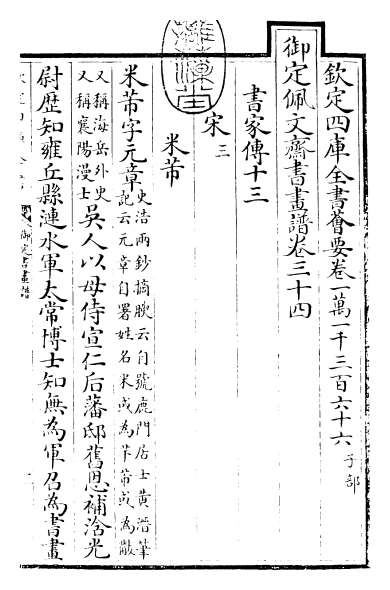 欽定四庫全書薈要卷一萬一千三百六十六 子部
御定佩文齋書畫譜卷三十四
書家傳十三
宋三
米芾
米芾字元章史浩兩鈔摘腴云自號鹿門居士黃溍筆
記云元章自署姓名米或為芊芾或為黻
又稱海岳外史
又稱襄陽漫士
吳人以母侍宣仁后藩邸舊恩補浛光
尉歷知雍丘縣漣水軍太常博士知無為軍召為書畫